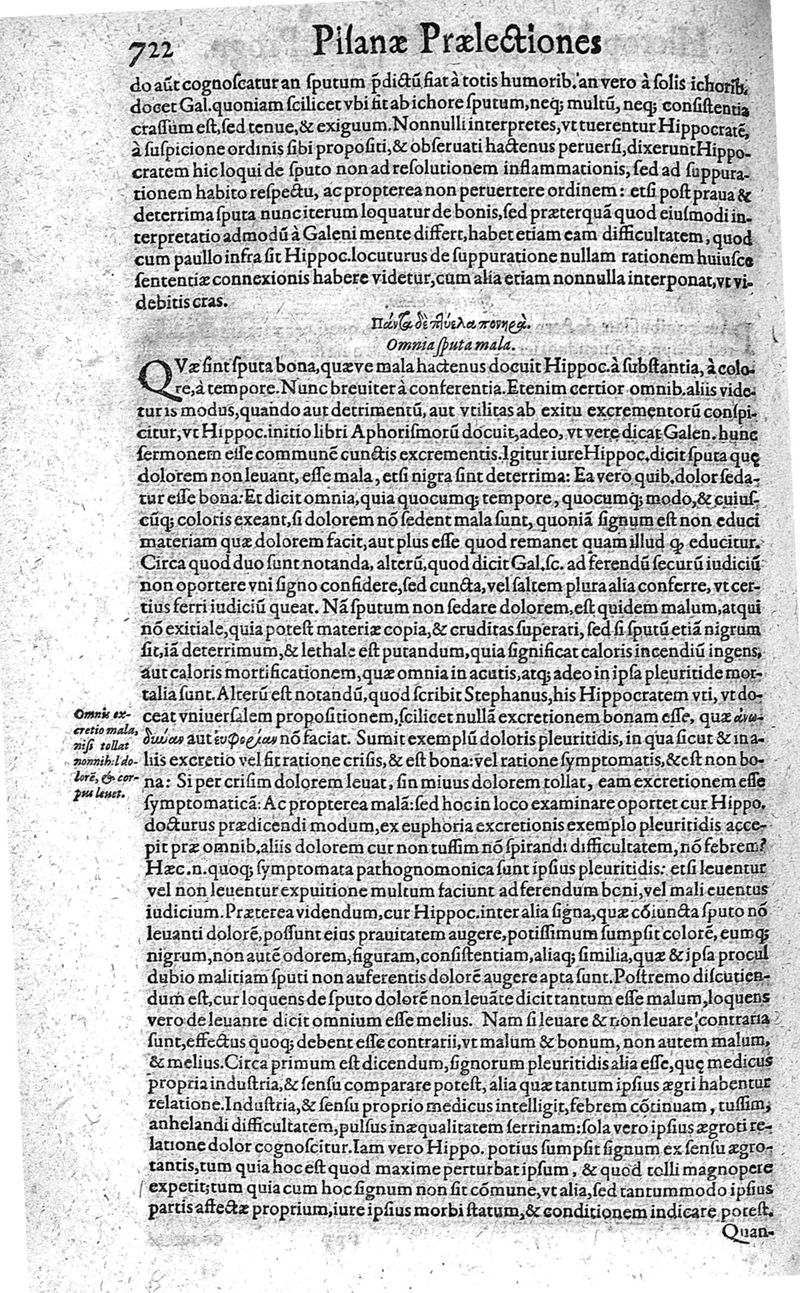 722
Pisanæ Prælectiones
do aũt cognoscatur an sputum p̃dictũ fiat à totis humorib. an vero à solis ichorib.
docet Gal. quoniam scilicet vbi fit ab ichore sputum, neq; multũ, neq; consistentia
crassum est, sed tenue, & exiguum. Nonnulli interpretes, vt tuerentur Hippocratẽ,
à suspicione ordinis sibi propositi, & obseruati hactenus peruersi, dixerunt Hippo-
cratem hic loqui de sputo non ad resolutionem inflammationis, sed ad suppura-
tionem habito respectu, ac propterea non peruertere ordinem: etsi post praua &
deterrima sputa nunc iterum loquatur de bonis, sed præterquã quod eiusmodi in-
terpretatio admodũ à Galeni mente differt, habet etiam eam difficultatem, quod
cum paullo infra sit Hippoc. locuturus de suppuratione nullam rationem huiusce
sententiæ connexionis habere videtur, cum alia etiam nonnulla interponat, vt vi-
debitis cras.
Πάντα δὲ πτύελα πονηρὰ.
Omnia sputa mala.
QVæ sint sputa bona, quæve mala hactenus docuit Hippoc. à substantia, à colo-
re, à tempore. Nunc breuiter à conferentia. Etenim certior omnib. aliis vide-
tur is modus, quando aut detrimentũ, aut vtilitas ab exitu excrementorũ conspi-
citur, vt Hippoc. initio libri Aphorismorũ docuit, adeo, vt vere dicat Galen. hunc
sermonem esse communẽ cunctis excrementis. Igitur iure Hippoc. dicit sputa quę
dolorem non leuant, esse mala, etsi nigra sint deterrima: Ea vero quib. dolor seda-
tur esse bona: Et dicit omnia, quia quocumq; tempore, quocumq; modo, & cuius-
cũq; coloris exeant, si dolorem nõ sedent mala sunt, quoniã signum est non educi
materiam quæ dolorem facit, aut plus esse quod remanet quam illud q̃ educitur.
Circa quod duo sunt notanda, alterũ, quod dicit Gal. sc. ad ferendũ securũ iudiciũ
non oportere vni signo confidere, sed cuncta, vel saltem plura alia conferre, vt cer-
tius ferri iudiciũ queat. Nã sputum non sedare dolorem, est quidem malum, atqui
nõ exitiale, quia potest materiæ copia, & cruditas superati, sed si sputũ etiã nigrum
sit, iã deterrimum, & lethale est putandum, quia significat caloris incendiũ ingens,
aut caloris mortificationem, quæ omnia in acutis, atq; adeo in ipsa pleuritide mor-
talia sunt. Alterũ est notandũ, quod scribit Stephanus, his Hippocratem vti, vt do-
ceat vniuersalem propositionem, scilicet nullã excretionem bonam esse, quæ ἀνω-
δυνίαν aut εὐφορίαν nõ faciat. Sumit exemplũ doloris pleuritidis, in qua sicut & in a-
liis excretio vel fit ratione crisis, & est bona: vel ratione symptomatis, & est non bo-
na: Si per crisim dolorem leuat, sin minus dolorem tollat, eam excretionem esse
symptomaticã: Ac propterea malã: sed hoc in loco examinare oportet cur Hippo.
docturus prædicendi modum, ex euphoria excretionis exemplo pleuritidis acce-
pit præ omnib. aliis dolorem cur non tussim nõ spirandi difficultatem, nõ febrem?
Hæc. n. quoq; symptomata pathognomonica sunt ipsius pleuritidis: etsi leuentur
vel non leuentur expuitione multum faciunt ad ferendum boni, vel mali euentus
iudicium. Præterea videndum, cur Hippoc. inter alia signa, quæ cõiuncta sputo nõ
leuanti dolorẽ, possunt eius prauitatem augere, potissimum sumpsit colorẽ, eumq;
nigrum, non autẽ odorem, figuram, consistentiam, aliaq; similia, quæ & ipsa procul
dubio malitiam sputi non auferentis dolorẽ augere apta sunt. Postremo discutien-
dum est, cur loquens de sputo dolorẽ non leuãte dicit tantum esse malum, loquens
vero de leuante dicit omnium esse melius. Nam si leuare & non leuare contraria
sunt, effectus quoq; debent esse contrarii, vt malum & bonum, non autem malum,
& melius. Circa primum est dicendum, signorum pleuritidis alia esse, quę medicus
propria industria, & sensu comparare potest, alia quæ tantum ipsius ægri habentur
relatione. Industria, & sensu proprio medicus intelligit, febrem cõtinuam, tussim,
anhelandi difficultatem, pulsus inæqualitatem serrinam: sola vero ipsius ægroti re-
latione dolor cognoscitur. Iam vero Hippo. potius sumpsit signum ex sensu ægro-
tantis, tum quia hoc est quod maxime perturbat ipsum, & quod tolli magnopere
expetit; tum quia cum hoc signum non sit cõmune, vt alia, sed tantummodo ipsius
partis affectæ proprium, iure ipsius morbi statum, & conditionem indicare potest.
Quan-
Omnis ex-
cretio mala,
nisi tollat
nonnihil do-
lorẽ, & cor-
pus leuet.